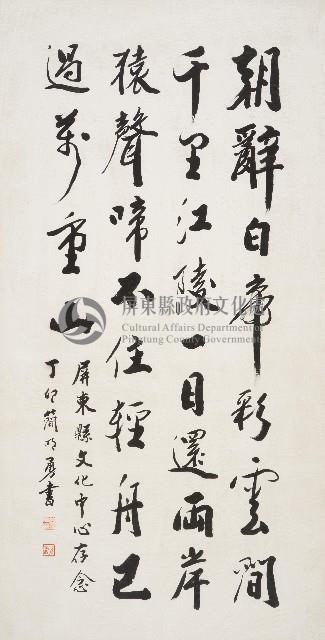 朝辭白帝彩雲間
千里江陵一日還兩岸
猿聲啼不住輕舟已
過萬重山
屏東縣文化中心存念
丁卯簡明勇書
屏東縣政府文化處
Cultural Affairs Department
Pingtung County Government